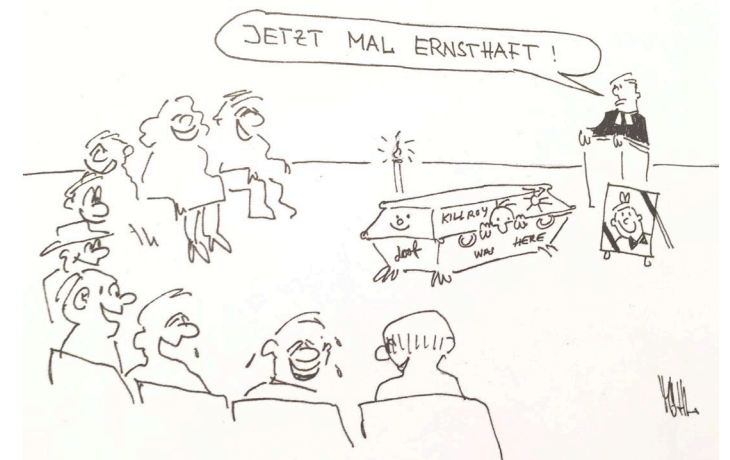 JETZT MAL ERNSTHAFT !
KILLROY
doof
WAS HERE